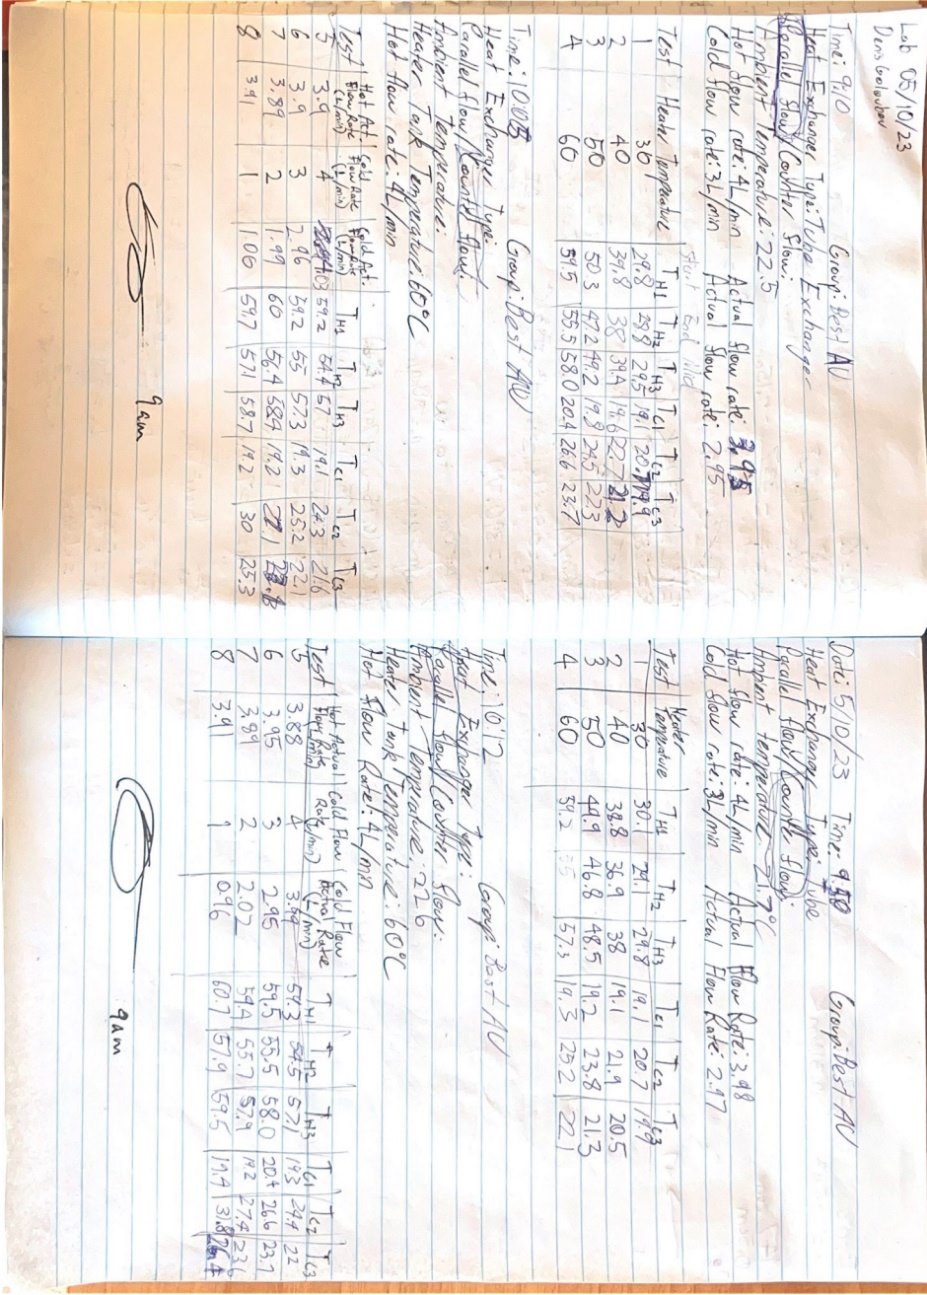 Lab 05/10/23
Denis Goloubev
Time: 9:10 Group: Best AU
Heat Exchanger Type: Tube Exchanger
Parallel flow/Counter flow:
Ambient Temperature: 22.5
Hot flow rate: 4L/min Actual flow rate: 3.95
Cold flow rate: 3L/min Actual flow rate: 2.95
Start End Mid
Test Heater Temperature TH1 TH2 TH3 TC1 TC2 TC3
1 30 29.8 29.8 29.5 19.1 20.7 19.9
2 40 39.8 38 39.4 19.6 22.7 21.2
3 50 50.3 47.2 49.2 19.8 24.5 22.3
4 60 59.5 55.5 58.0 20.4 26.6 23.7
Time: 1005 Group: Best AU
Heat Exchanger Type:
Parallel flow/Counter flow:
Ambient Temperature:
Heater Tank Temperature: 60°C
Hot flow rate: 4L/min
Test Hot Act. Flow Rate (L/min) Cold Flow Rate (L/min) Cold Act. Flow Rate (L/min) TH1 TH2 TH3 TC1 TC2 TC3
5 3.9 4 59.2 54.4 57 19.1 24.3 21.6
6 3.9 3 2.96 59.2 55 57.3 19.3 25.2 22.1
7 3.89 2 1.99 60 56.4 58.9 19.2
8 3.91 1 1.06 59.7 57.1 58.7 19.2 30 25.3
9am
Date: 5/10/23 Time: 9:50 Group: Best AU
Heat Exchanger Type: Tube
Parallel flow/Counter flow:
Ambient temperature: 21.7°C
Hot flow rate: 4L/min Actual Flow Rate: 3.98
Cold flow rate: 3L/min Actual Flow Rate: 2.97
Test Heater Temperature TH1 TH2 TH3 TC1 TC2 TC3
1 30 30.1 29.1 29.8 19.1 20.7 19.9
2 40 38.8 36.9 38 19.1 21.9 20.5
3 50 49.9 46.8 48.5 19.2 23.8 21.3
4 60 59.2 55 57.3 19.3 25.2 22.1
Time: 10:12 Group: Best AU
Heat Exchanger Type:
Parallel flow/Counter flow:
Ambient Temperature: 22.6
Heater Tank Temperature: 60°C
Hot flow Rate: 4L/min
Test Hot Actual Flow Rate (L/min) Cold Flow Rate (L/min) Cold Flow Actual Rate (L/min) TH1 TH2 TH3 TC1 TC2 TC3
5 3.88 4 59.3 54.5 57.1 19.3 24.4 22
6 3.95 3 2.95 59.5 55.5 58.0 20.4 26.6 23.7
7 3.89 2 2.07 59.4 55.7 57.9 19.2 27.4 23.6
8 3.91 1 0.96 60.7 57.9 59.5 19.4 31.8 26.4
9am